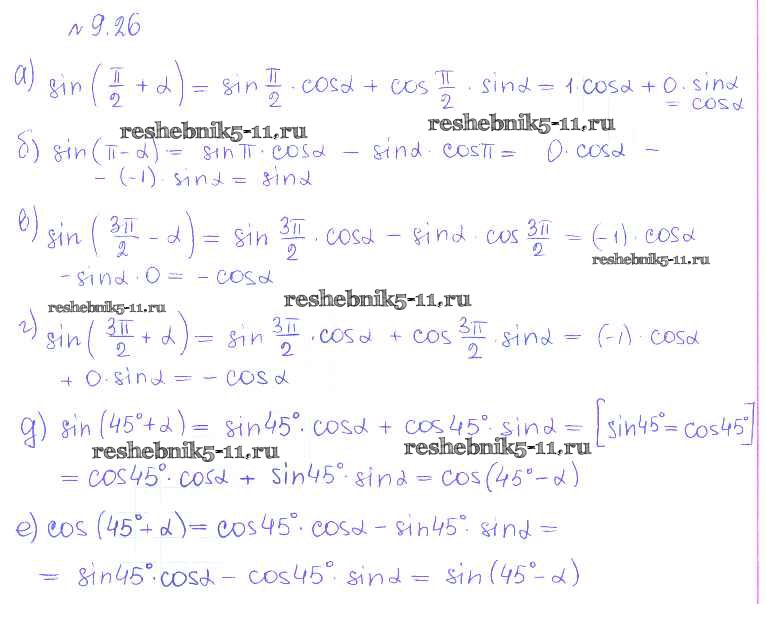 № 9.26
а) sin(π/2 + α) = sin π/2 · cosα + cos π/2 · sinα = 1·cosα + 0·sinα
= cosα
reshebnik5-11.ru reshebnik5-11.ru
б) sin(π-α) = sinπ·cosα - sinα·cosπ = 0·cosα -
- (-1)·sinα = sinα
в) sin(3π/2 - α) = sin 3π/2 · cosα - sinα · cos 3π/2 = (-1)·cosα
reshebnik5-11.ru
-sinα·0 = -cosα
reshebnik5-11.ru reshebnik5-11.ru
г) sin(3π/2 + α) = sin 3π/2 ·cosα + cos 3π/2 ·sinα = (-1)·cosα
+ 0·sinα = -cosα
д) sin(45°+α) = sin45°·cosα + cos45°·sinα = [sin45°=cos45°]
reshebnik5-11.ru reshebnik5-11.ru
= cos45°·cosα + sin45°·sinα = cos(45°-α)
е) cos(45°+α) = cos45°·cosα - sin45°·sinα =
= sin45°·cosα - cos45°·sinα = sin(45°-α)